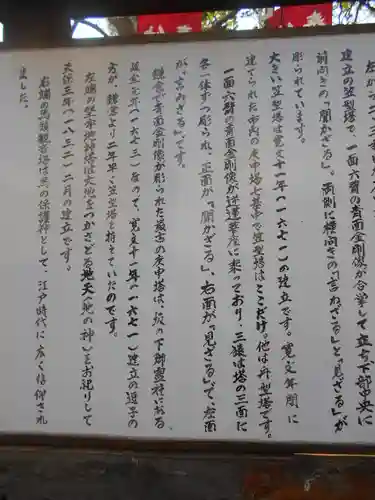 建立の笠型塔で、一面六臂の青面金剛像が合掌して立ち下部中央に
前向きの「聞かざる」。両側に横向きの「言わざる」と「見ざる」が
彫られています。
大きい笠型塔は寛文十一年(一六七一)の建立です。寛文年間に
建てられた市内の庚申塔七基中で笠型塔はここだけ。他は舟型塔です。
一面六臂の青面金剛像が逆蓮華座に乗っており、三猿は塔の三面に
各一体ずつ彫られ、正面が「聞かざる」、右面が「見ざる」で、左面
が「言わざる」です。
鎌倉で青面金剛像が彫られた最古の庚申塔は、坂ノ下御霊社にある
延宝元年(一六七三)なので、寛文十一年(一六七一)建立の逗子の
方が、鎌倉より二年早い笠型塔を持っていたのです。
左端の堅牢地神塔は大地をつかさどる地天(地の神)をお祀りして
天保三年(一八三二)二月の建立です。
右端の馬頭観音塔は馬の保護神として、江戸時代に広く信仰され
ました。